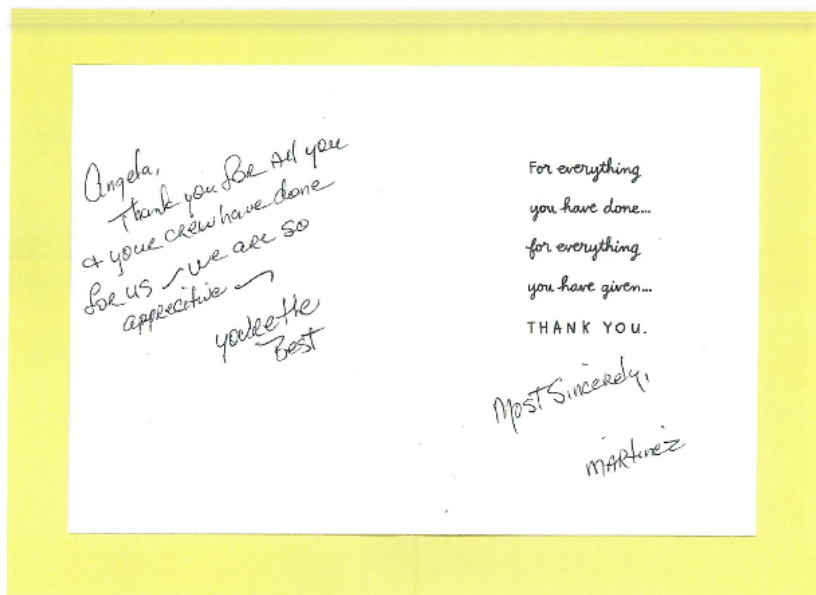 Angela,
Thank you for All you
& your crew have done
for us ~ we are so
apprecitive ~
you're the
Best
For everything
you have done...
for everything
you have given...
THANK YOU.
Most Sincerely,
Martinez